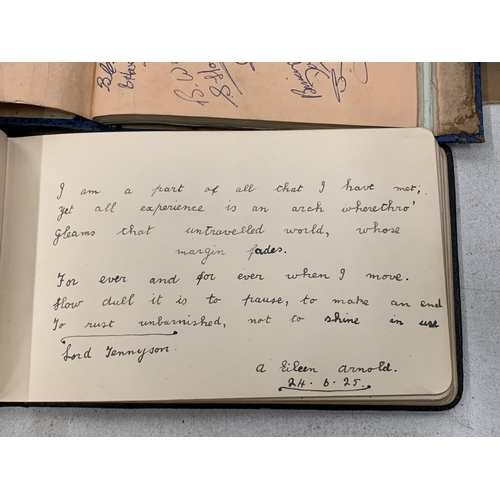 I am a part of all that I have met;
Yet all experience is an arch wherethro'
Gleams that untravelled world, whose
margin fades.
For ever and for ever when I move.
How dull it is to pause, to make an end
To rust unburnished, not to shine in use
Lord Tennyson.
A Eileen Arnold.
24.6.25.